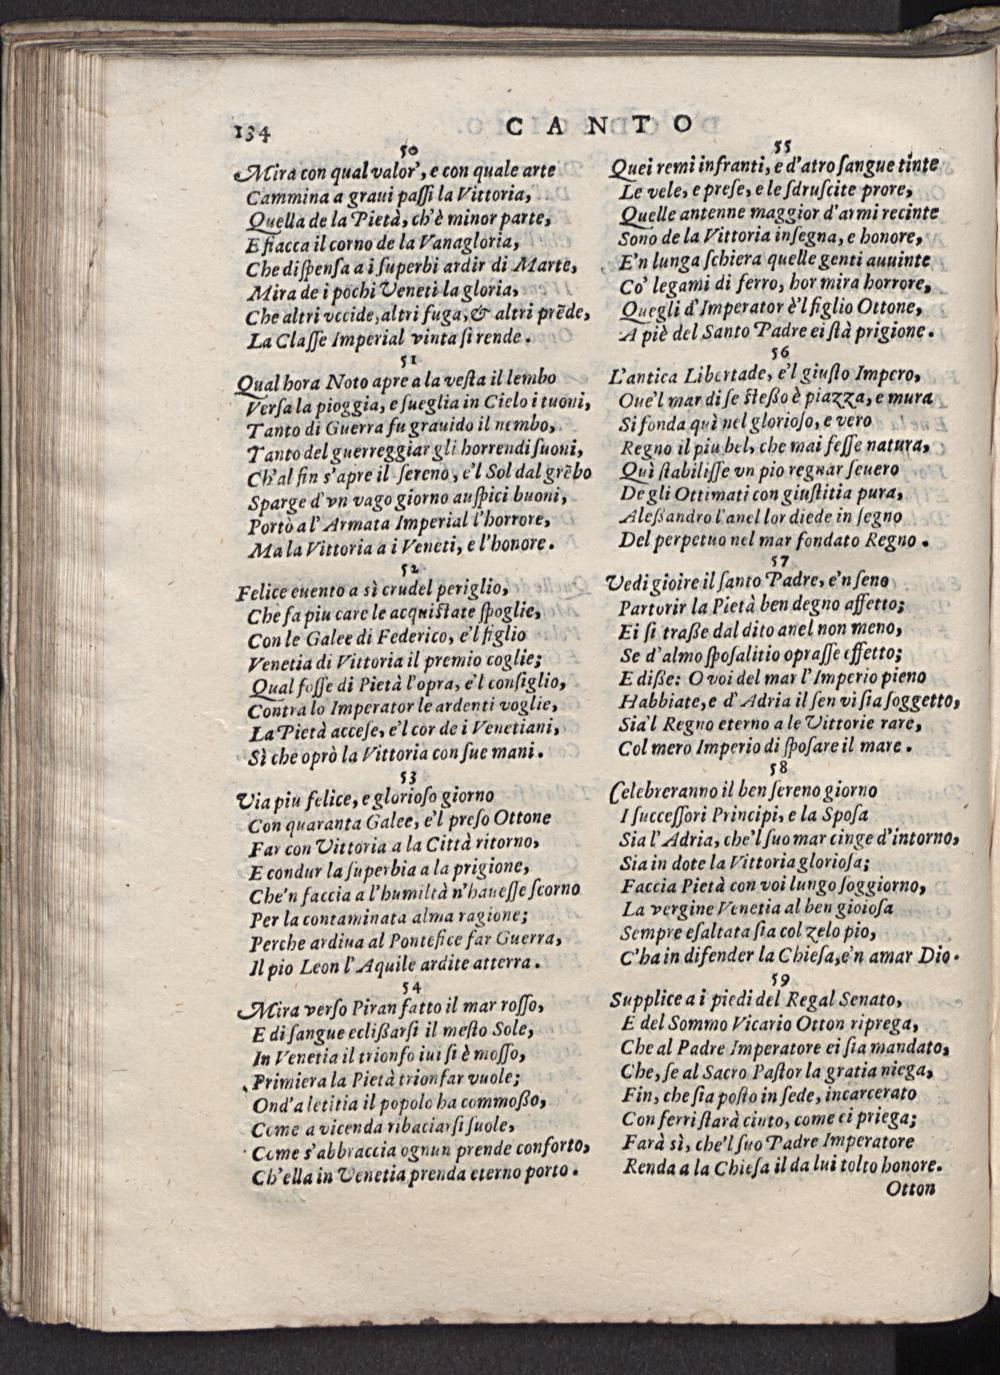 134
CANTO
50
Mira con qual valor, e con quale arte
Cammina a graui paſſi la Vittoria,
Quella de la Pietà, ch'è minor parte,
E fiacca il corno de la Vanagloria,
Che diſpenſa a i ſuperbi ardir di Marte,
Mira de i pochi Veneti la gloria,
Che altri vccide, altri fuga, & altri prẽde,
La Claſſe Imperial vinta ſi rende.
51
Qual hora Noto apre a la veſta il lembo
Verſa la pioggia, e ſueglia in Cielo i tuoni,
Tanto di Guerra fu grauido il nembo,
Tanto del guerreggiar gli horrendi ſuoni,
Ch'al fin s'apre il ſereno, e'l Sol dal grẽbo
Sparge d'vn vago giorno auſpici buoni,
Portò a l'Armata Imperial l'horrore,
Ma la Vittoria a i Veneti, e l'honore.
52
Felice euento a sì crudel periglio,
Che fa piu care le acquiſtate ſpoglie,
Con le Galee di Federico, e'l figlio
Venetia di Vittoria il premio coglie;
Qual foſſe di Pietà l'opra, e'l conſiglio,
Contra lo Imperator le ardenti voglie,
La Pietà acceſe, e'l cor de i Venetiani,
Sì che oprò la Vittoria con ſue mani.
53
Via piu felice, e glorioſo giorno
Con quaranta Galee, e'l preſo Ottone
Far con Vittoria a la Città ritorno,
E condur la ſuperbia a la prigione,
Che'n faccia a l'humiltà n'haueſſe ſcorno
Per la contaminata alma ragione;
Perche ardiua al Pontefice far Guerra,
Il pio Leon l'Aquile ardite atterra.
54
Mira verſo Piran fatto il mar roſſo,
E di ſangue eclißarſi il meſto Sole,
In Venetia il trionfo iui ſi è moſſo,
Primiera la Pietà trionfar vuole;
Ond'a letitia il popolo ha commoßo,
Come a vicenda ribaciarſi ſuole,
Come s'abbraccia ognun prende conforto,
Ch'ella in Venetia prenda eterno porto.
55
Quei remi infranti, e d'atro ſangue tinte
Le vele, e preſe, e le ſdruſcite prore,
Quelle antenne maggior d'armi recinte
Sono de la Vittoria inſegna, e honore,
E'n lunga ſchiera quelle genti auuinte
Co' legami di ferro, hor mira horrore,
Quegli d'Imperator è'l figlio Ottone,
A piè del Santo Padre ei ſtà prigione.
56
L'antica Libertade, e'l giuſto Impero,
Oue'l mar di ſe ſteßo è piazza, e mura
Si fonda quì nel glorioſo, e vero
Regno il piu bel, che mai feſſe natura,
Quì ſtabiliſſe vn pio regnar ſeuero
De gli Ottimati con giuſtitia pura,
Aleßandro l'anel lor diede in ſegno
Del perpetuo nel mar fondato Regno.
57
Vedi gioire il ſanto Padre, e'n ſeno
Partorir la Pietà ben degno affetto;
Ei ſi traße dal dito anel non meno,
Se d'almo ſpoſalitio opraſſe effetto;
E diße: O voi del mar l'Imperio pieno
Habbiate, e d'Adria il ſen vi ſia ſoggetto,
Sia'l Regno eterno a le Vittorie rare,
Col mero Imperio di ſpoſare il mare.
58
Celebreranno il ben ſereno giorno
I ſucceſſori Principi, e la Spoſa
Sia l'Adria, che'l ſuo mar cinge d'intorno,
Sia in dote la Vittoria glorioſa;
Faccia Pietà con voi lungo ſoggiorno,
La vergine Venetia al ben gioioſa
Sempre eſaltata ſia col zelo pio,
C'ha in difender la Chieſa, e'n amar Dio.
59
Supplice a i piedi del Regal Senato,
E del Sommo Vicario Otton riprega,
Che al Padre Imperatore ei ſia mandato,
Che, ſe al Sacro Paſtor la gratia niega,
Fin, che ſia poſto in ſede, incarcerato
Con ferri ſtarà cinto, come ei priega;
Farà sì, che'l ſuo Padre Imperatore
Renda a la Chieſa il da lui tolto honore.
Otton